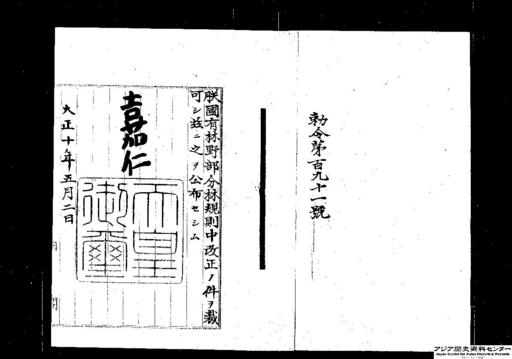 勅令第百九十一號
朕國有林野部分林規則中改正ノ件ヲ裁
可シ茲ニ之ヲ公布セシム
嘉仁
天皇
御璽
大正十年五月二日
アジア歴史資料センター
Japan Center for Asian Historical Records